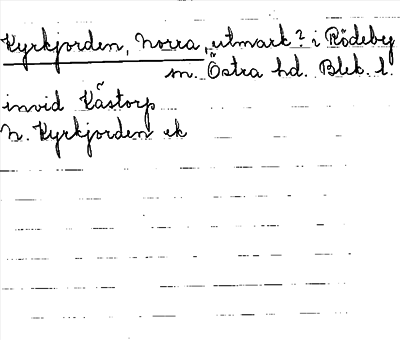 Kyrkjorden, Norra, utmark? i Rödeby
sn. Östra hd. Blek. l.
invid Kåstorp
N. Kyrkjorden ek